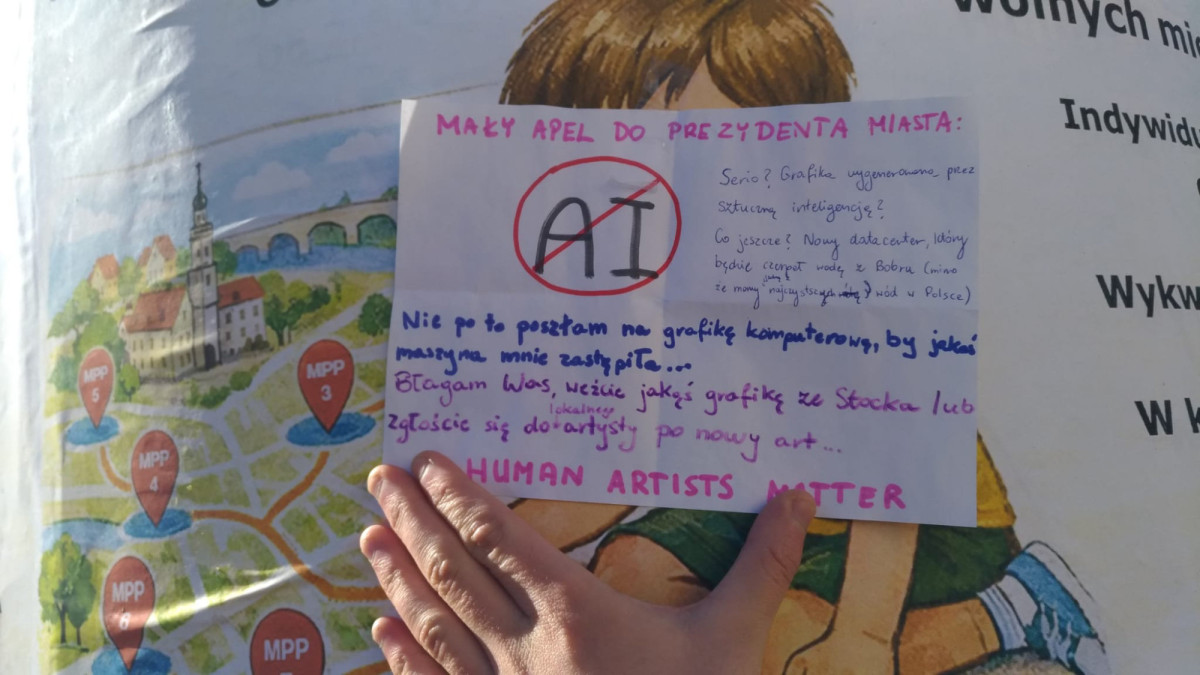 Wolnych
Indywidu
Wykw
W k
MAŁY APEL DO PREZYDENTA MIASTA:
AI
Serio? Grafika wygenerowana przez
sztuczną inteligencję?
Co jeszcze? Nowy datacenter, który
będzie czerpał wodę z Bobru (mimo
że mamy jedną z najczystszych wód w Polsce)
Nie po to poszłam na grafikę komputerową, by jakaś
maszyna mnie zastąpiła...
Błagam Was, weźcie jakąś grafikę ze Stocka /lub
zgłoście się do lokalnego artysty po nowy art...
HUMAN ARTISTS MATTER
MPP
5
MPP
3
MPP
4
MPP
6
MPP